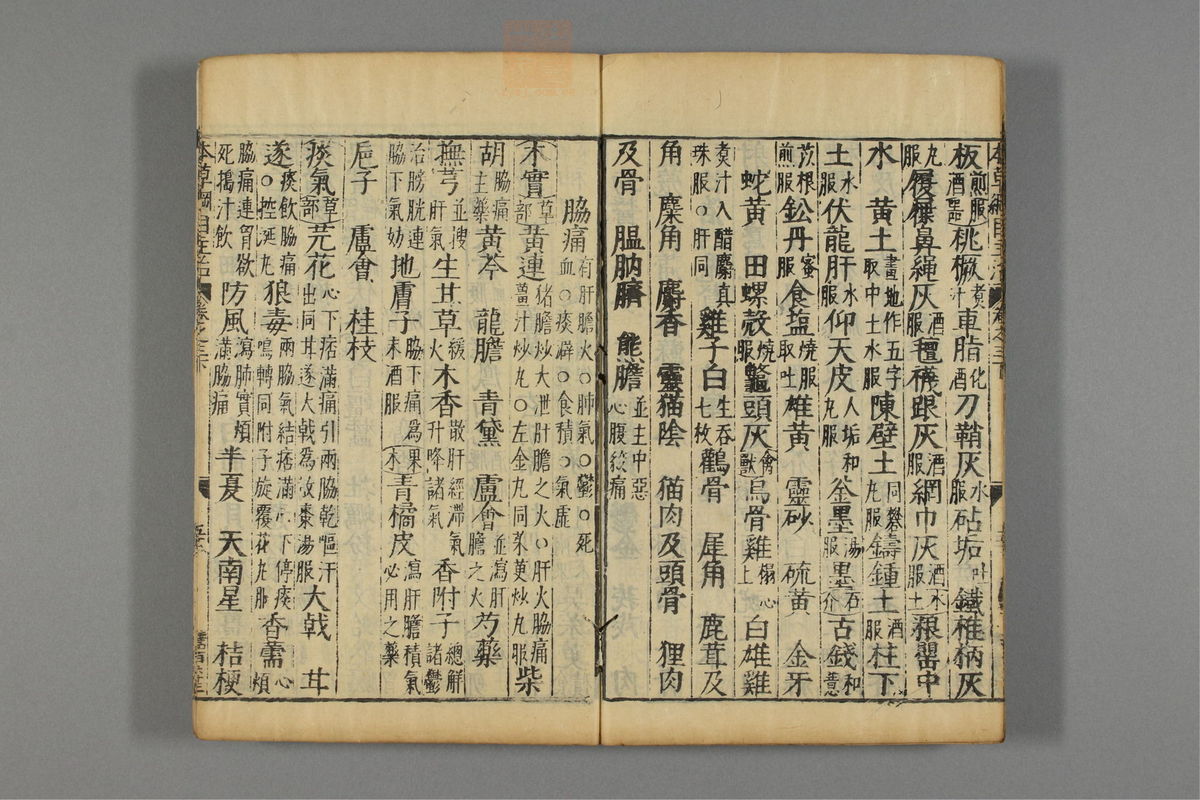 板煎酒服桃橛煮汁車脂化酒刀鞘灰水服砧垢鐵椎柄灰
丸酒服履鼻繩灰酒服氊襪跟灰酒服網巾灰酒服
水 黃土畫地作五字取中土水服陳壁土同礬丸服鑄鍾土酒服柱下
土水服伏龍肝水服仰天皮人垢和丸服釜墨湯服墨石介古錢和薏
苡根煎服鈆丹蜜服食塩燒服取吐雄黃 靈砂 硫黃 金牙
蛇黃 田螺殼燒服鼈頭灰禽獸烏骨雞搨心上白雄雞
煑汁入醋麝真珠服○肝同雞子白生吞七枚鸛骨 犀角 鹿茸及
角 麋角 麝香 靈猫陰 猫肉及頭骨 狸肉
及骨 膃肭臍 熊膽並主中惡心腹絞痛
脇痛有肝膽火○肺氣○鬱○死血○痰澼○食積○氣虛
木實草部黃連猪膽炒大泄肝膽之火○肝火脇痛薑汁炒丸○左金丸同茱萸炒丸服柴
胡脇痛主藥黃芩 龍膽 青黛 盧會並瀉肝膽之火芍藥
撫芎並搜肝氣生甘草緩火木香散肝經滯氣升降諸氣香附子總解諸鬱
治膀胱連脇下氣妨地膚子脇下痛為末酒服果木青橘皮瀉肝膽積氣必用之藥
巵子 盧會 桂枝
痰氣草部芫花心下痞滿痛引兩脇乾嘔汗出同甘遂大戟為散棗湯服大戟 甘
遂痰飲脇痛○控涎丸狼毒兩脇氣結痞滿心下停痰鳴轉同附子旋覆花丸服香薷心煩
脇痛連胷欲死搗汁飲防風瀉肺實煩滿脇痛半夏 天南星 桔梗